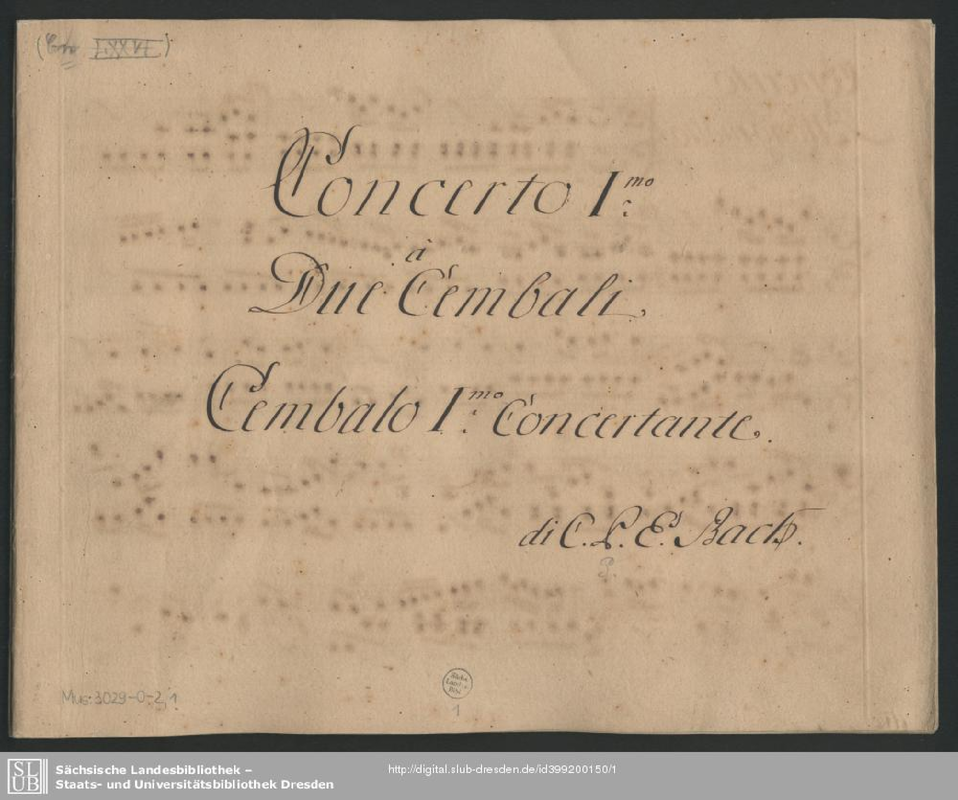 Concerto I.mo
à
Due Cembali.
Cembalo I.mo Concertante.
di C. P. E. Bach.
Mus: 3029-0-2,1
Sächs.
Landes-
Bibl.
1
SLUB
Sächsische Landesbibliothek –
Staats- und Universitätsbibliothek Dresden
http://digital.slub-dresden.de/id399200150/1